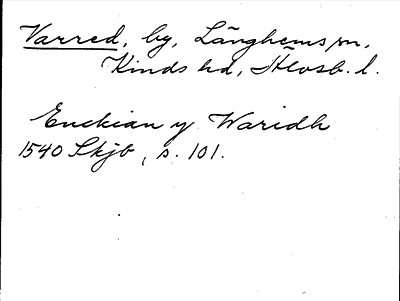 Varred, by, Länghems sn,
Kinds hd, Älvsb. l.
Enckian y Waridh
1540 Skjb, s. 101.